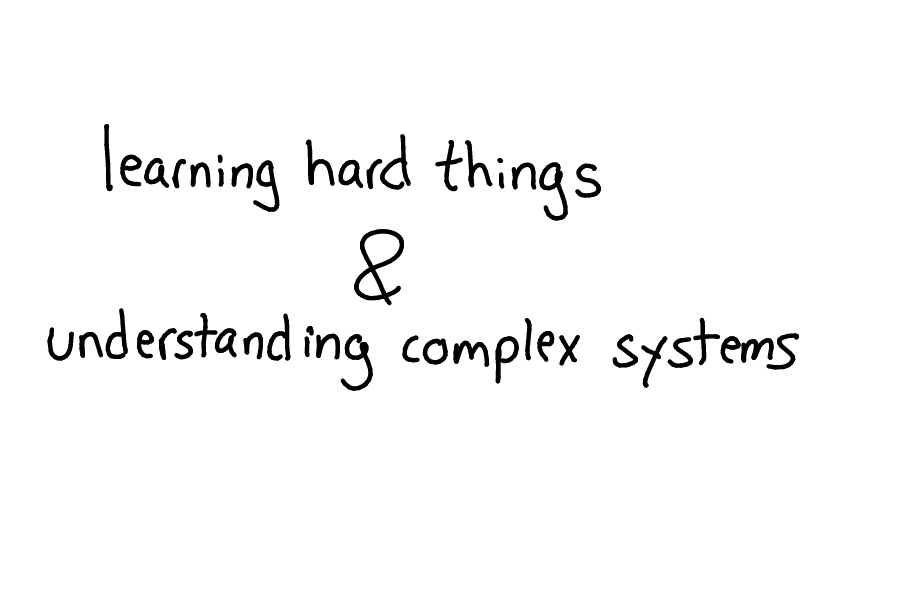 learning hard things
&
understanding complex systems